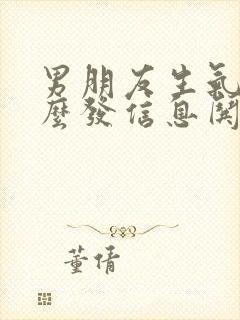 男朋友生氣
麼發信息關
董倩